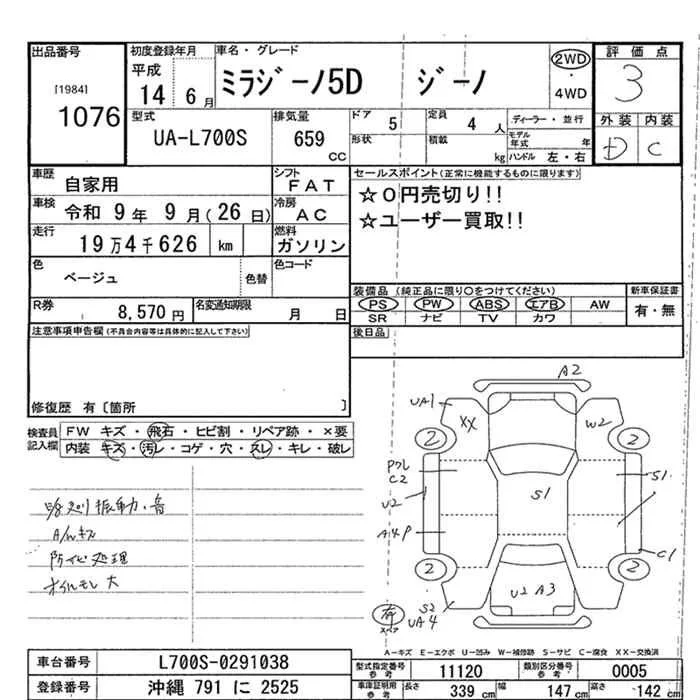 出品番号
[1984]
1076
初度登録年月
平成
14 6月
車名・グレード
ミラジーノ5D ジーノ
2WD
・
4WD
評価点
3
外装 内装
D C
型式
UA-L700S
排気量
659
CC
ドア
5
形状
定員
4 人
積載
kg
ディーラー・並行
モデル年式 年
ハンドル 左・右
車歴
自家用
シフト
FAT
車検
令和 9年 9月(26日)
冷房
AC
走行
19万4千626 km
燃料
ガソリン
色
ベージュ
色替
色コード
R券
8,570円
名変通知期限
月 日
セールスポイント(正常に機能するものに限ります)
☆0円売切り!!
☆ユーザー買取!!
装備品 (純正品に限り○をつけてください)
PS PW ABS エアB AW
SR ナビ TV カワ
新車保証書
有・無
後日品
注意事項申告欄(不具合内容等は具体的に記入して下さい)
修復歴 有〔箇所 〕
検査員記入欄
FW キズ・飛石・ヒビ割・リペア跡・×要
内装・キズ・汚レ・コゲ・穴・スレ・キレ・破レ
振動・音
A/Wキズ
処理
オイルモレ大
A2
UA1
XX
W2
2
2
Pクレ
C2
U2
A4P
S1
S1
C1
2
2
U2 A3
有
スペア
S2
UA4
A-キズ E-エクボ U-凹み W-補修跡 S-サビ C-腐食 XX-交換済
車台番号
L700S-0291038
登録番号
沖縄 791 に 2525
型式指定番号
参考
11120
類別区分番号
参考
0005
車庫証明用
参考
長さ
339 cm
幅
147 cm
高さ
142 cm